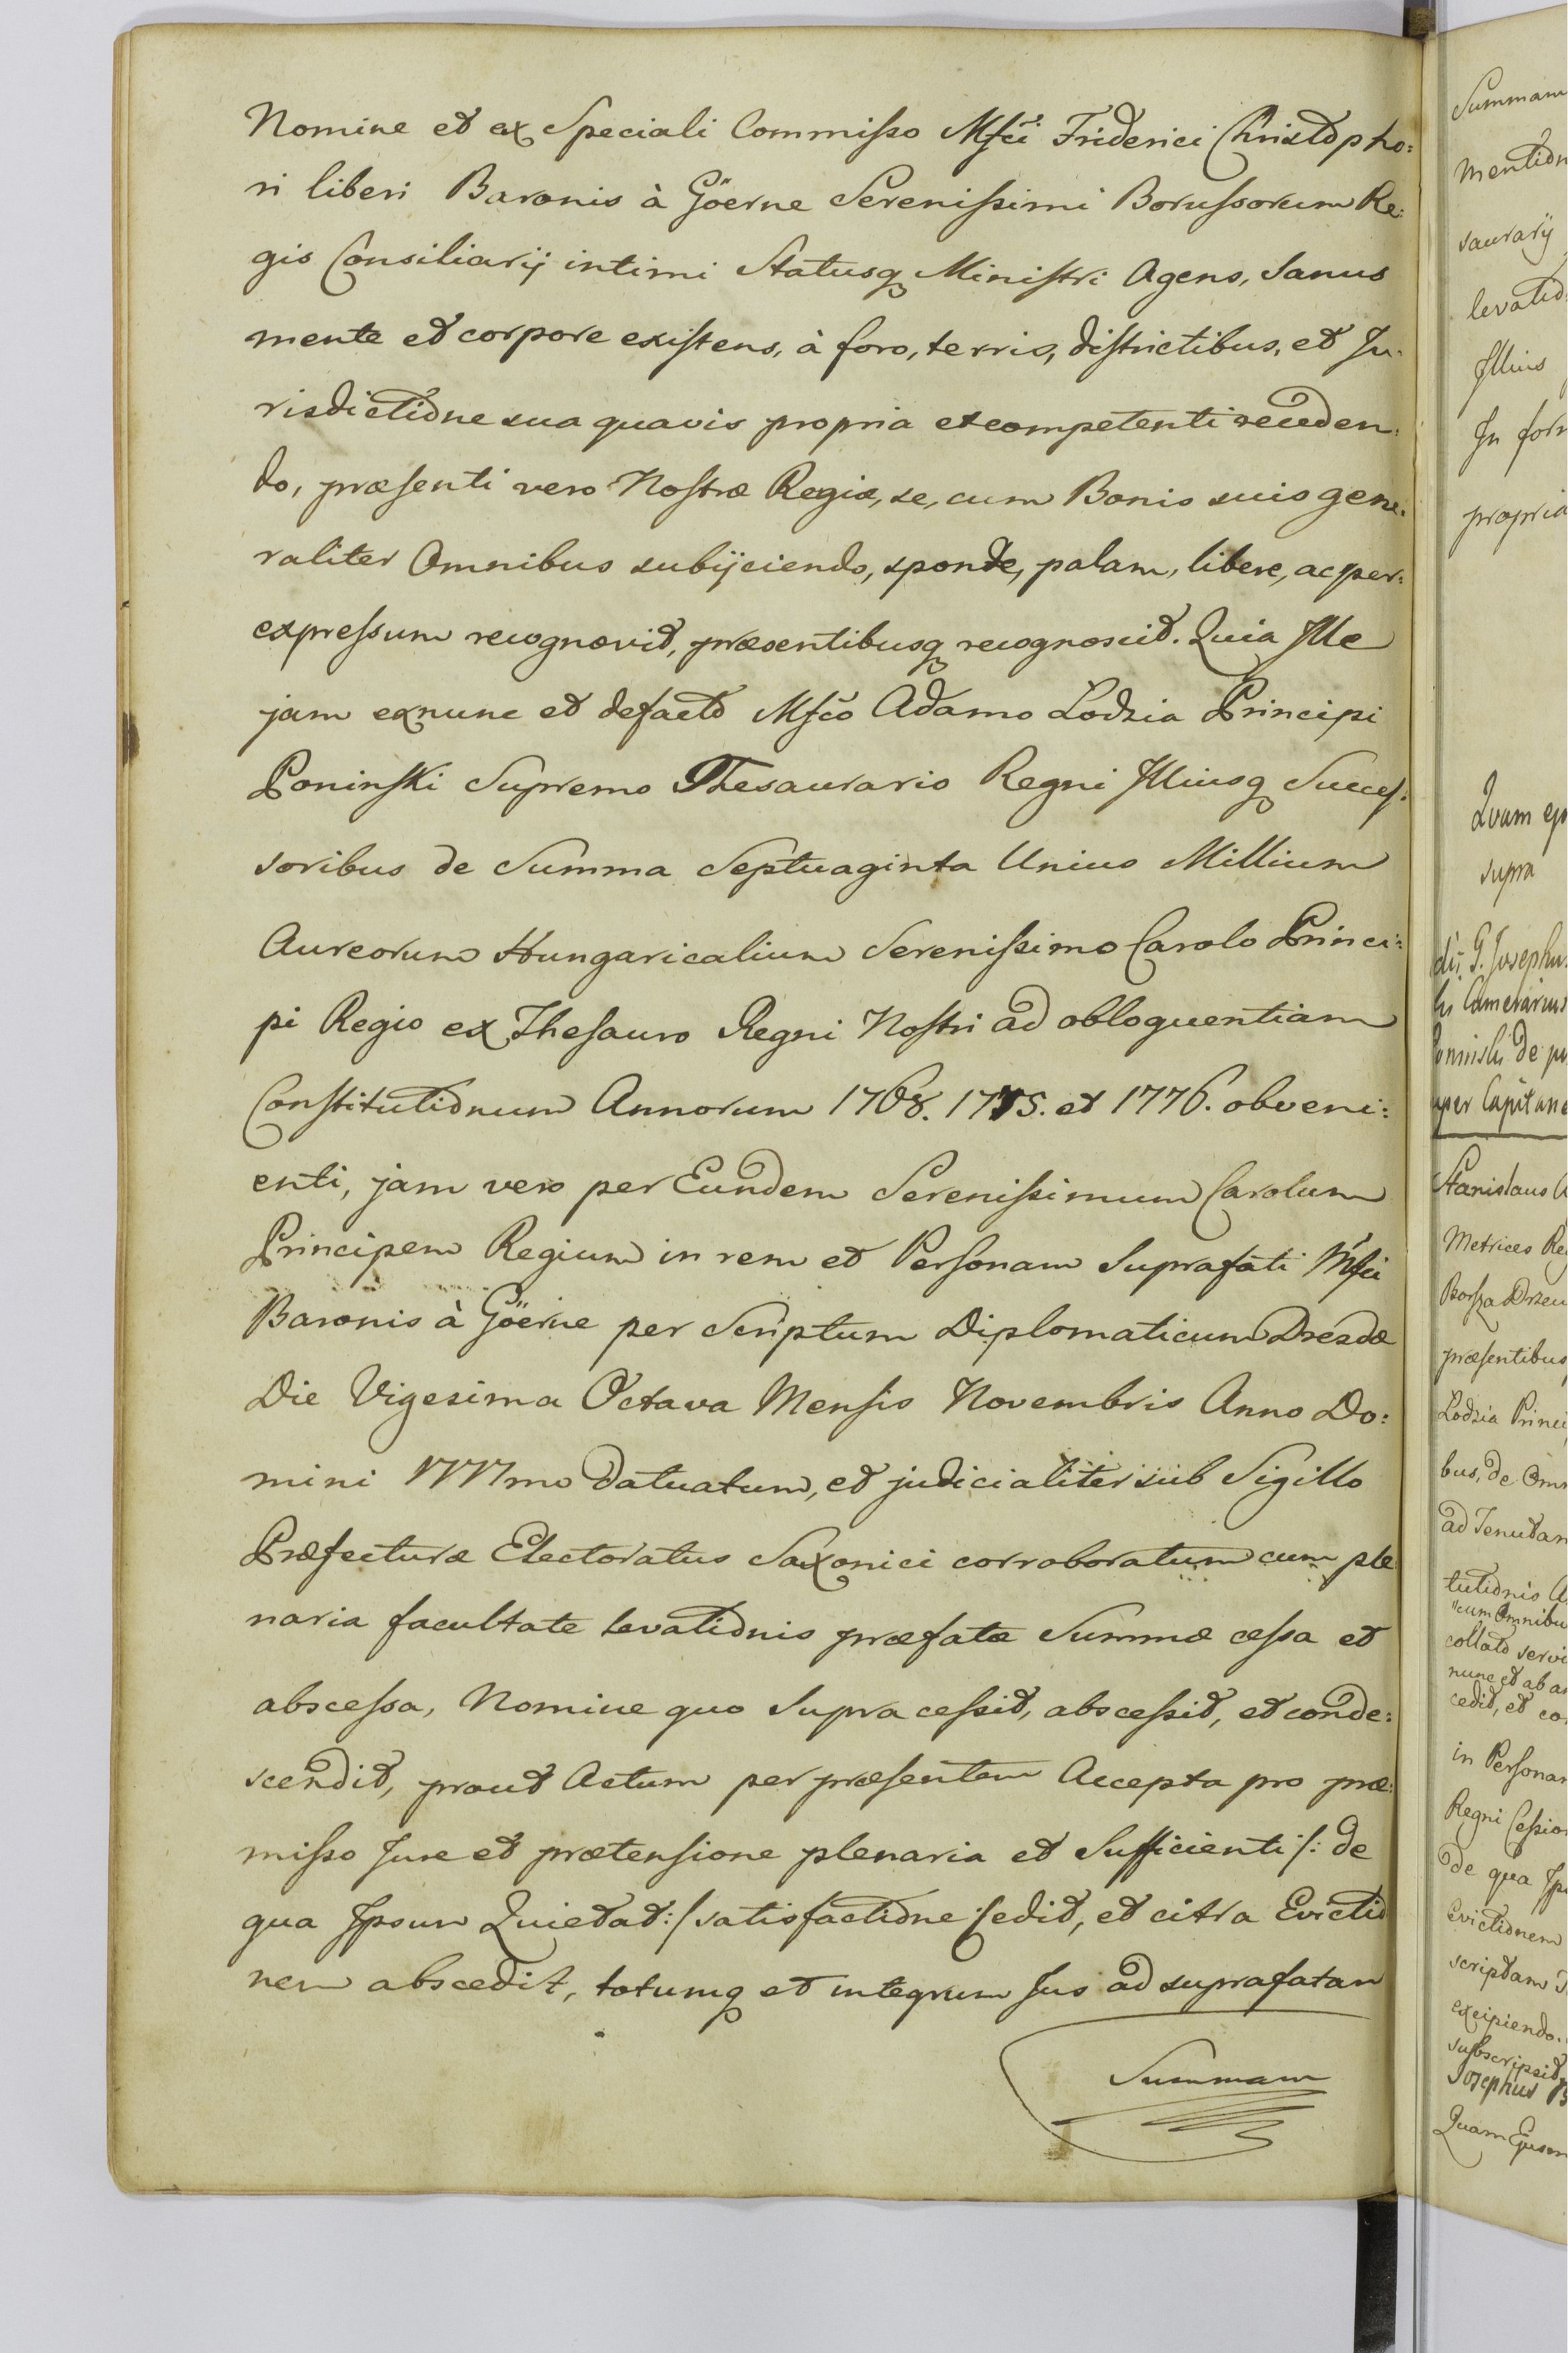 Nomine et ex Speciali Commisso Mfci Friderici Christopho:
ri liberi Baronis à Göerne Serenissimi Borussorum Re:
gis Consiliarij intimi Statusq Ministri Agens, Sanus
mente et corpore existens, à foro, terris, districtibus, et Ju:
risdictione sua quavis propria et competenti receden:
do, præsenti vero Nostræ Regiæ, se, cum Bonis suis gene:
raliter Omnibus subijciendo, sponte, palam, libere, ac per:
expressum recognovit, præsentibusq recognoscit. Quia Ille
jam exnunc et defacto Mfco Adamo Lodzia Principi
Poninski Supremo Thesaurario Regni Illiusq Succes:
soribus de Summa Septuaginta Unius Millium
Aureorum Hungaricalium Serenissimo Carolo Princi:
pi Regio ex Thesauro Regni Nostri ad obloquentiam
Constitutionum Annorum 1768. 1775. et 1776. obveni:
enti, jam vero per Eundem Serenissimum Carolum
Principem Regium in rem et Personam Suprafati Mfci
Baronis à Göerne per Scriptum Diplomaticum Dresdæ
Die Vigesima Octava Mensis Novembris Anno Do:
mini 1777mo Datuatum, et judicialiter sub Sigillo
Præfecturæ Electoratus Saxonici corroboratum cum ple
naria facultate levationis præfatæ Summæ cessa et
abscessa, Nomine quo Supra cessit, abscessit, et conde:
scendit, prout Actum per præsentem Accepta pro præ:
misso Jure et prætensione plenaria et Sufficienti /: de
qua Ipsum Quietat :/ satisfactione Cedit, et citra Evictio
nem abscedit, totumq et integrum Jus ad suprafatam
Summam
Summam
mention
saurarij
levatio:
Illius
In form
propria
Quam
supra
G. Josephu
Camerarius
de
per Capitane
Stanislaus
Metrices Reg
præsentibus
Lodzia Princi
bus, de Omn
ad Tenutam
tutionis
cum Omnibu
collato servi
nunc et ab
cedit, et con
in Personam
Regni Cessio
de qua Ips
Evictionem
scriptam
excipiendo.
subscripsit
Josephus
Quam